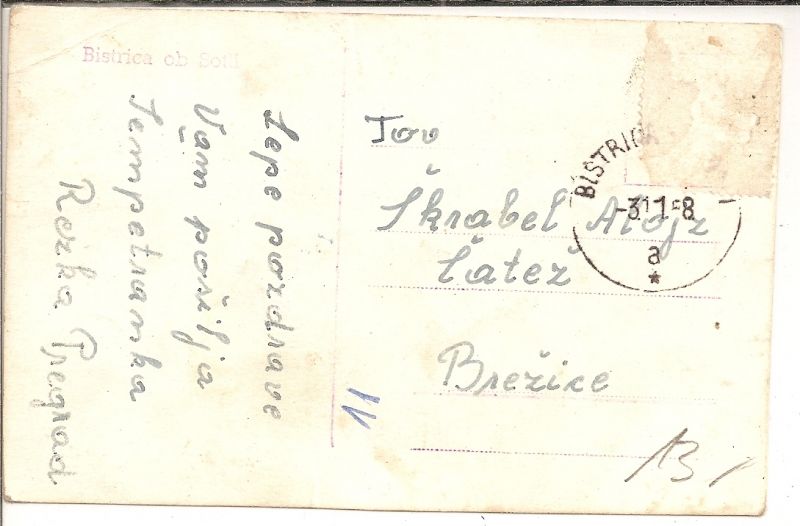 Bistrica ob Sotli
Lepe pozdrave
Vam pošilja
Šempetranka
Rezka Pregrad
Tov
Škrabel Alojz
Čatež
Brežice
11
13
BISTRICA
a
*